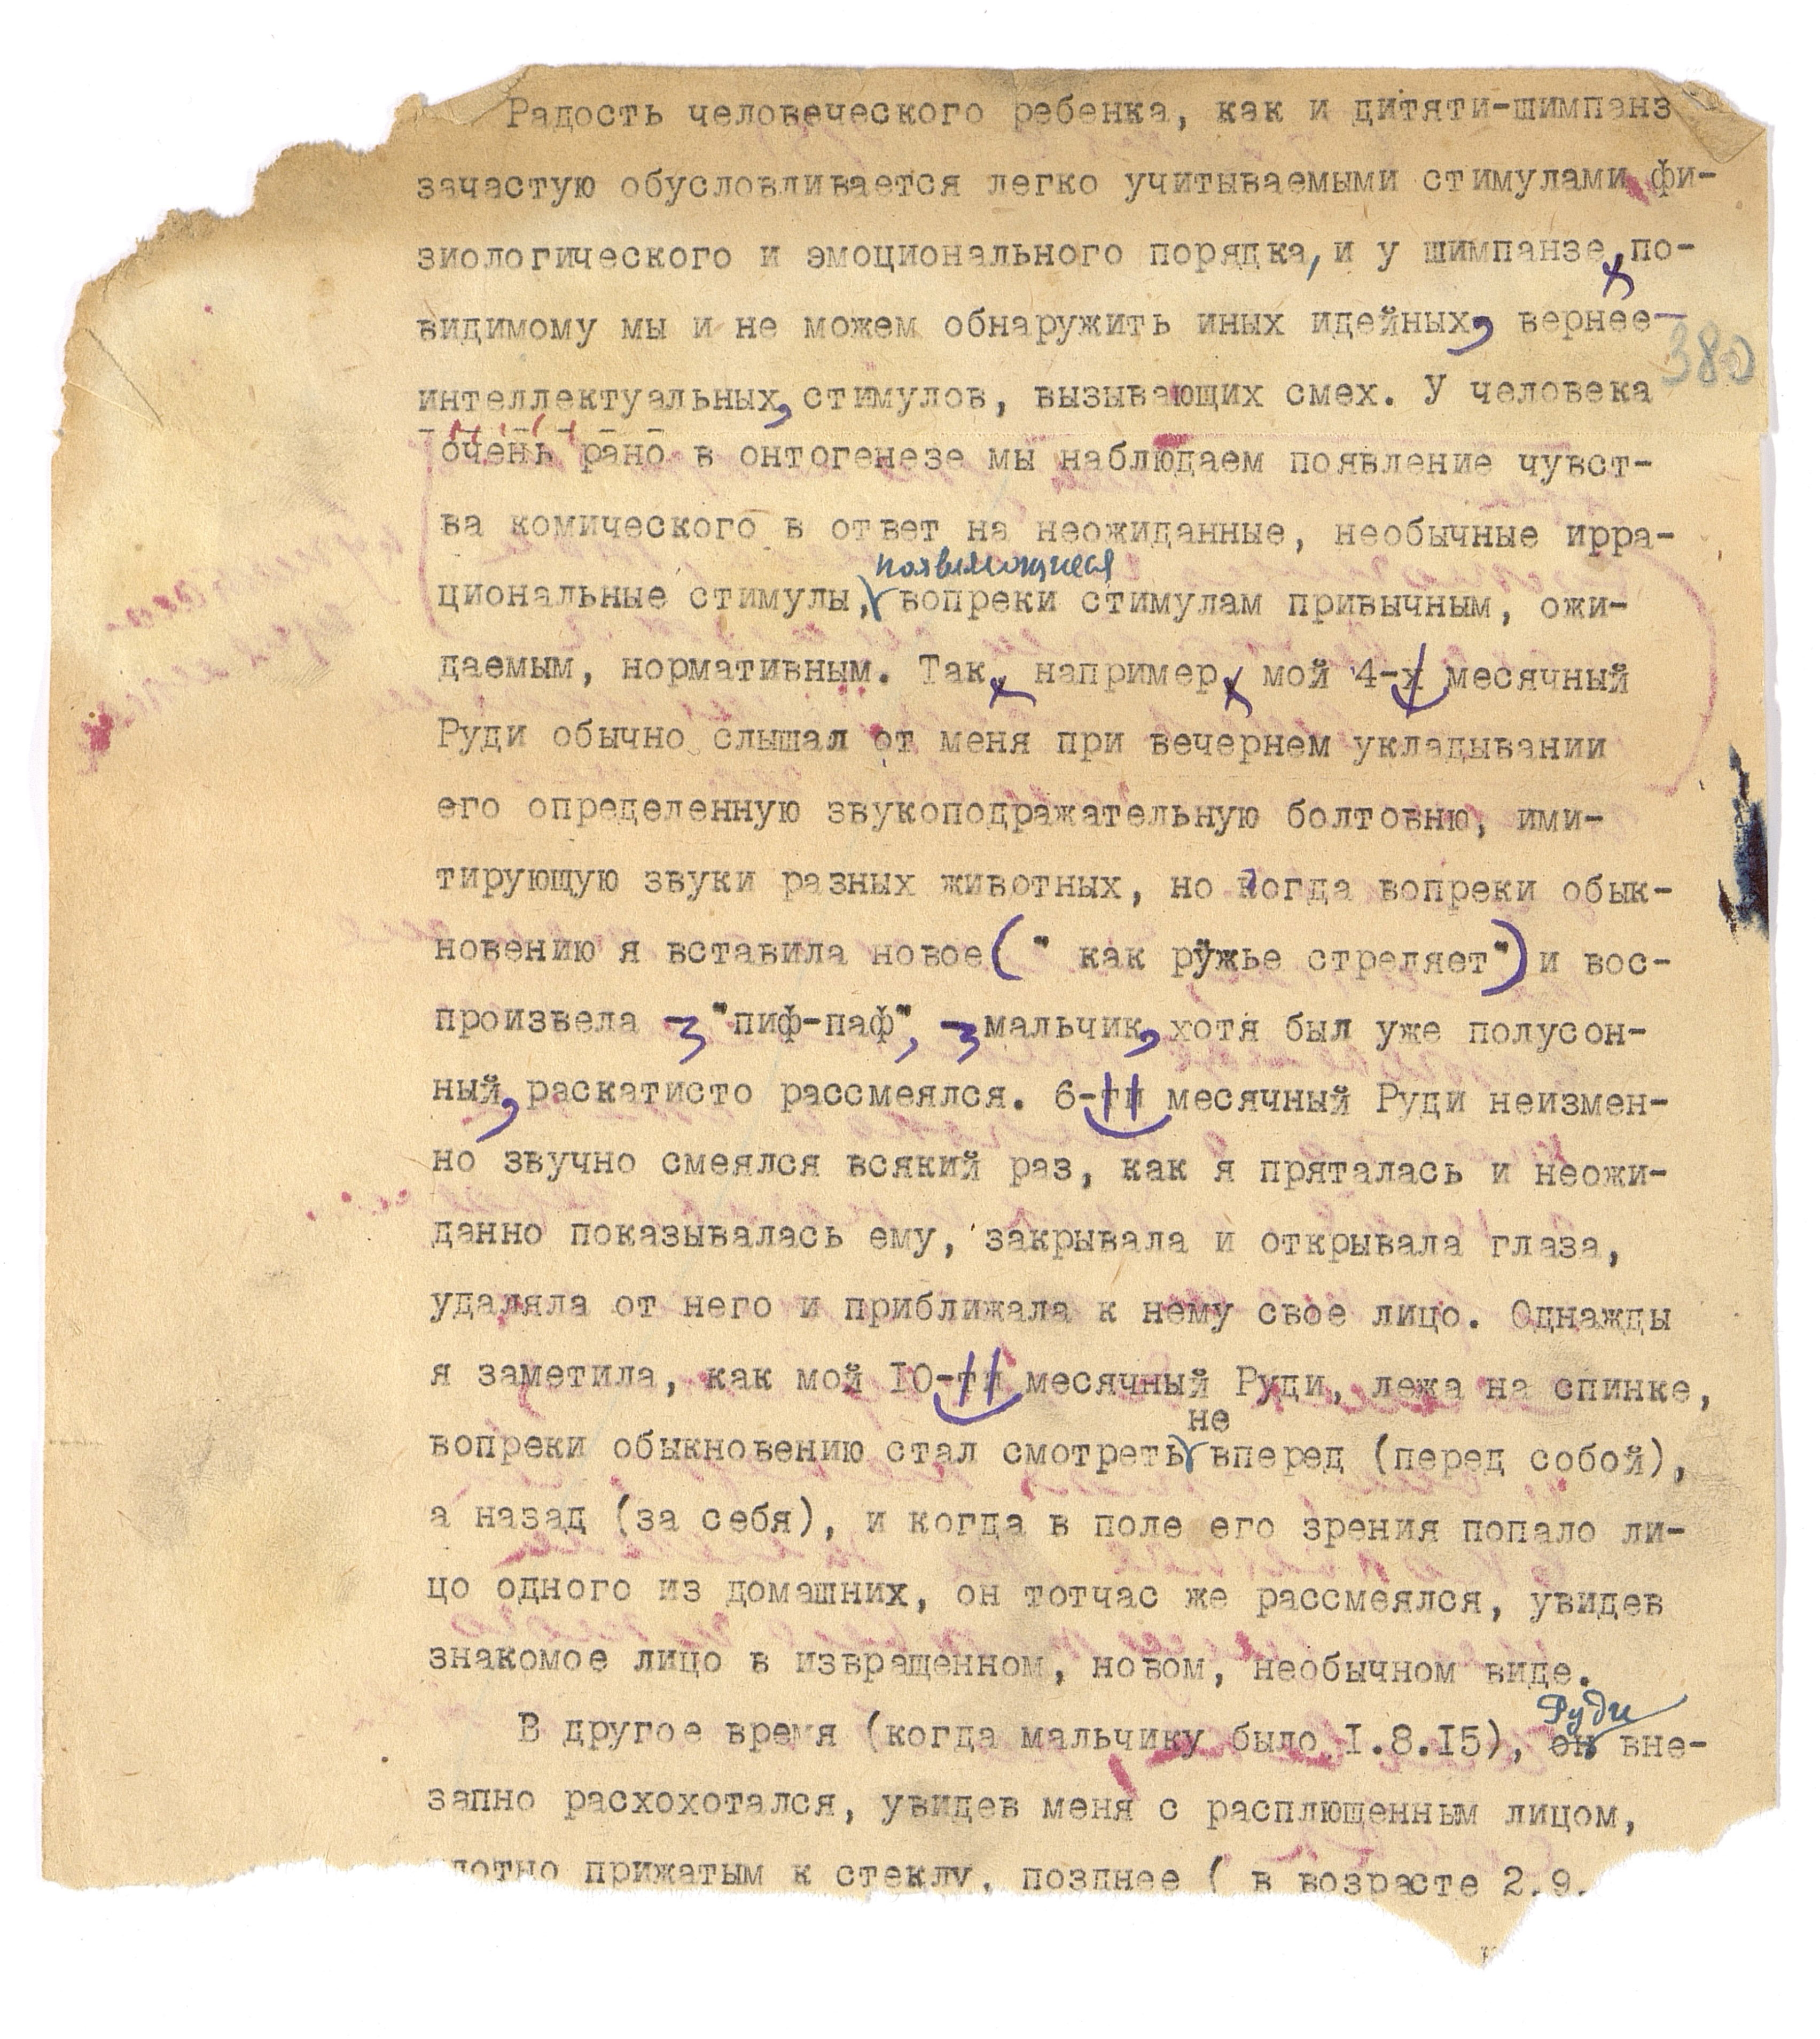 Радость человеческого ребенка, как и дитяти-шимпанз
зачастую обусловливается легко учитываемыми стимулами фи-
зиологического и эмоционального порядка, и у шимпанзе, по-
видимому мы и не можем обнаружить иных идейных, вернее —
380
интеллектуальных, стимулов, вызывающих смех. У человека
очень рано в онтогенезе мы наблюдаем появление чувст-
ва комического в ответ на неожиданные, необычные ирра-
появляющиеся
циональные стимулы, вопреки стимулам привычным, ожи-
даемым, нормативным. Так, например, мой 4-х месячный
Руди обычно слышал от меня при вечернем укладывании
его определенную звукоподражательную болтовню, ими-
тирующую звуки разных животных, но когда вопреки обык-
новению я вставила новое (" как ружье стреляет") и вос-
произвела - "пиф-паф", - мальчик, хотя был уже полусон-
ный, раскатисто рассмеялся. 6-ти месячный Руди неизмен-
но звучно смеялся всякий раз, как я пряталась и неожи-
данно показывалась ему, закрывала и открывала глаза,
удаляла от него и приближала к нему свое лицо. Однажды
я заметила, как мой 10-ти месячный Руди, лежа на спинке,
не
вопреки обыкновению стал смотреть вперед (перед собой),
а назад (за себя), и когда в поле его зрения попало ли-
цо одного из домашних, он тотчас же рассмеялся, увидев
знакомое лицо в извращенном, новом, необычном виде.
Руди
В другое время (когда мальчику было I.8.I5), он вне-
запно расхохотался, увидев меня с расплющенным лицом,
лотно прижатым к стеклу, позднее ( в возрасте 2.9.